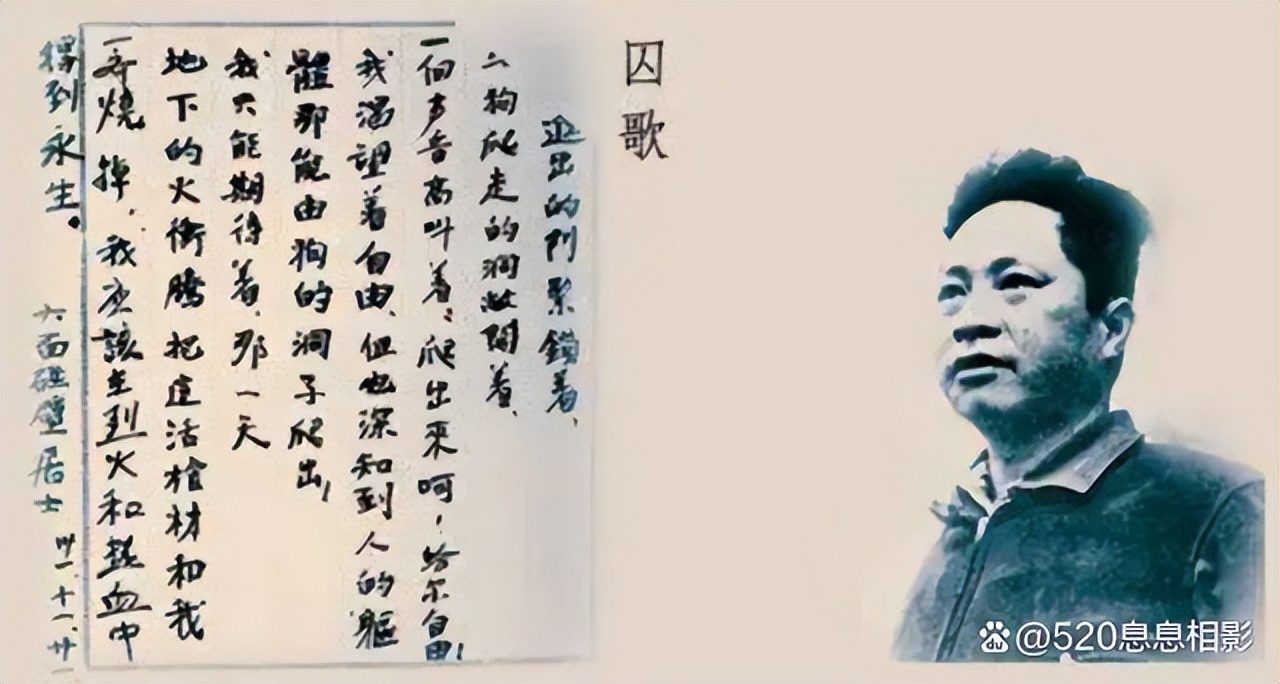 囚歌
进出的门紧锁着、
狗爬走的洞敞開着、
一個声音高叫着：爬出來呵！给尔自由！
我渴望着自由、但也深知到人的軀
體那能由狗的洞子爬出！
我只能期待着、那一天
地下的火衝騰把這活棺材和我
一齐燒掉，我应該在烈火和熱血中
得到永生。
六面碰壁居士 卅一、十一、廿一
@520息息相影